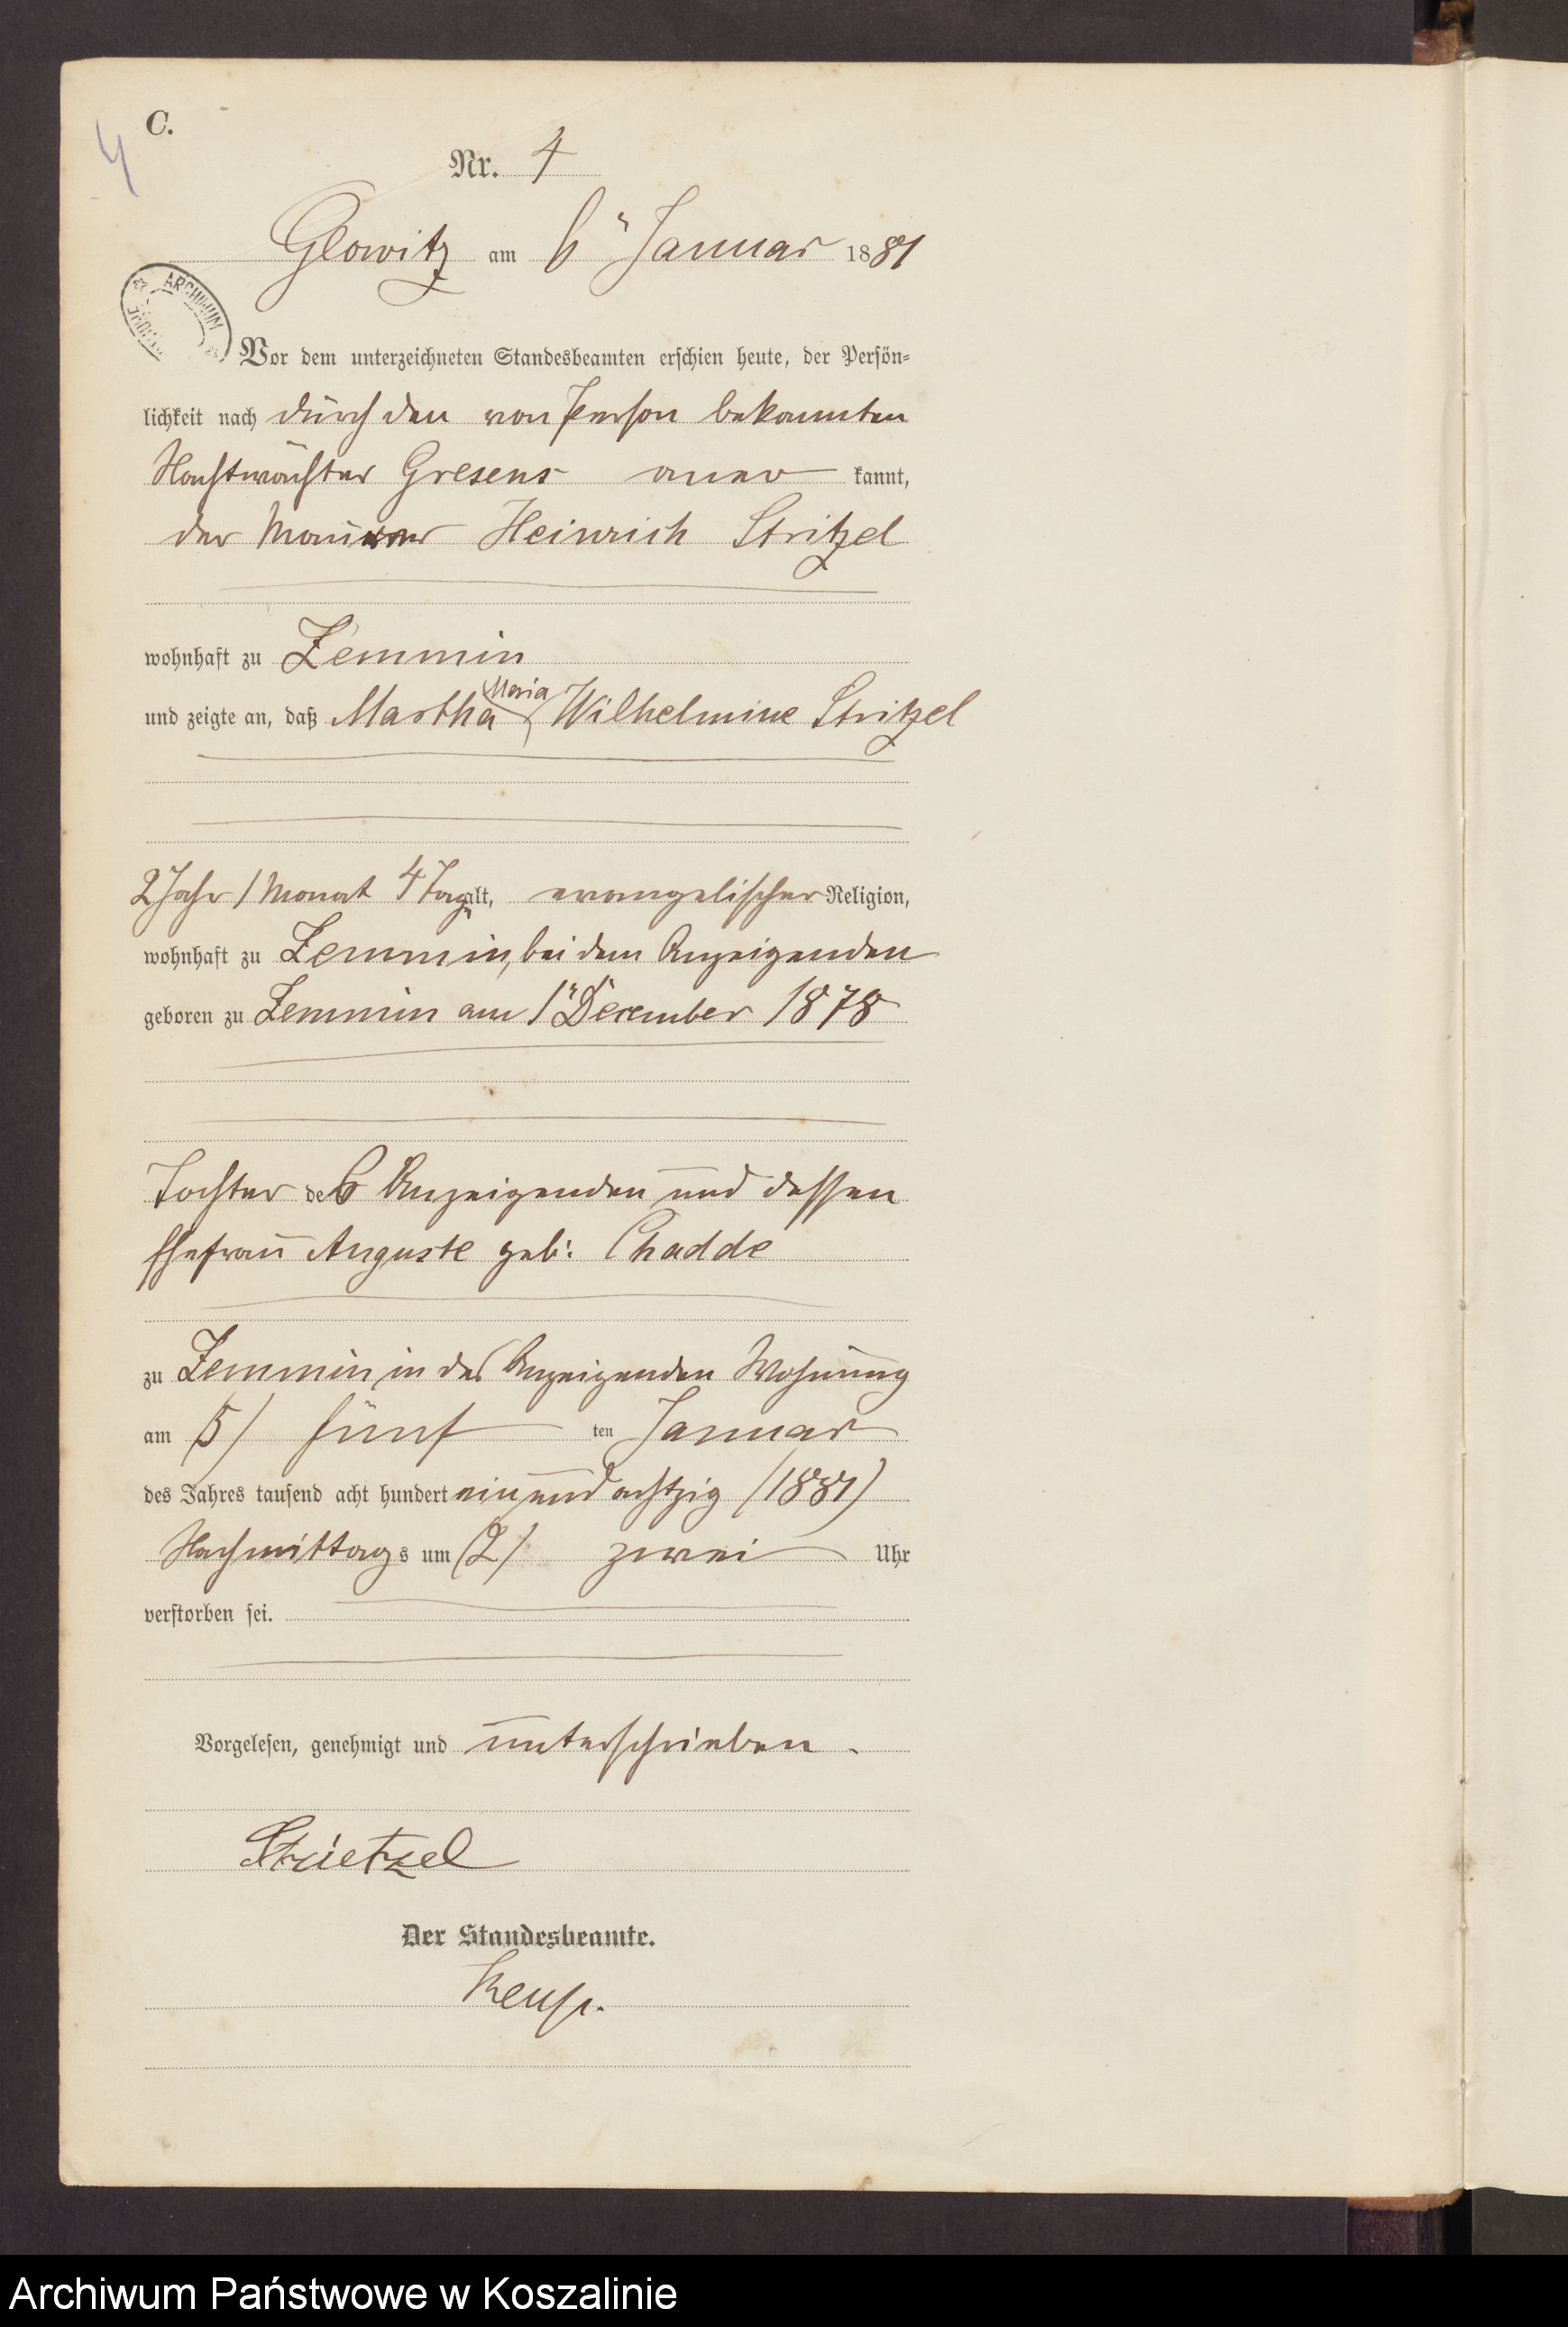 4
C.
Nr. 4
Glowitz am 6" Januar 1881
ARCHIWUM
Vor dem unterzeichneten Standesbeamten erschien heute, der Persön-
lichkeit nach durch den von Person bekannten
Nachtwächter Gresens aner kannt,
der Maurer Heinrich Stritzel
wohnhaft zu Zemmin
Maria
und zeigte an, daß Martha Wilhelmine Stritzel
2 Jahr 1 Monat 4 Tage alt, evangelischer Religion,
wohnhaft zu Zemmin, bei dem Anzeigenden
geboren zu Zemmin am 1" December 1878
Tochter des Anzeigenden und dessen
Ehefrau Auguste geb: Chadde
zu Zemmin in des Anzeigenden Wohnung
am (5) fünf ten Januar
des Jahres tausend acht hundert ein und achtzig (1881)
Nachmittags um (2) zwei Uhr
verstorben sei.
Vorgelesen, genehmigt und unterschrieben.
Strietzel
Der Standesbeamte.
Archiwum Państwowe w Koszalinie